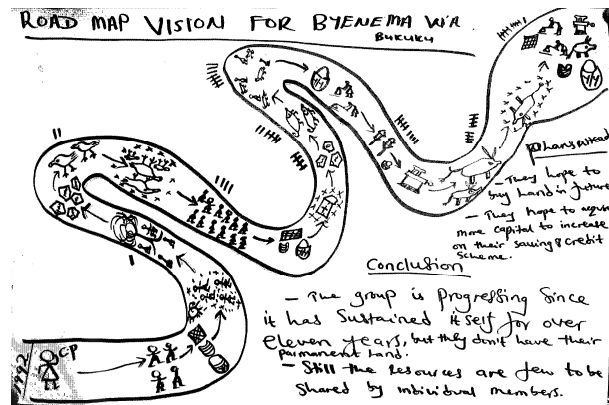 ROAD MAP VISION FOR BYENEMA WA
BUKUKU
Plans Ahead
- They hope to
buy land in future
- They hope to
more capital to increase
on their saving & credit
scheme.
Conclusion
- The group is progressing since
it has sustained itself for over
eleven years, but they don't have their
parmanent land.
- Still the resources are few to be
shared by individual members.
CP
1992